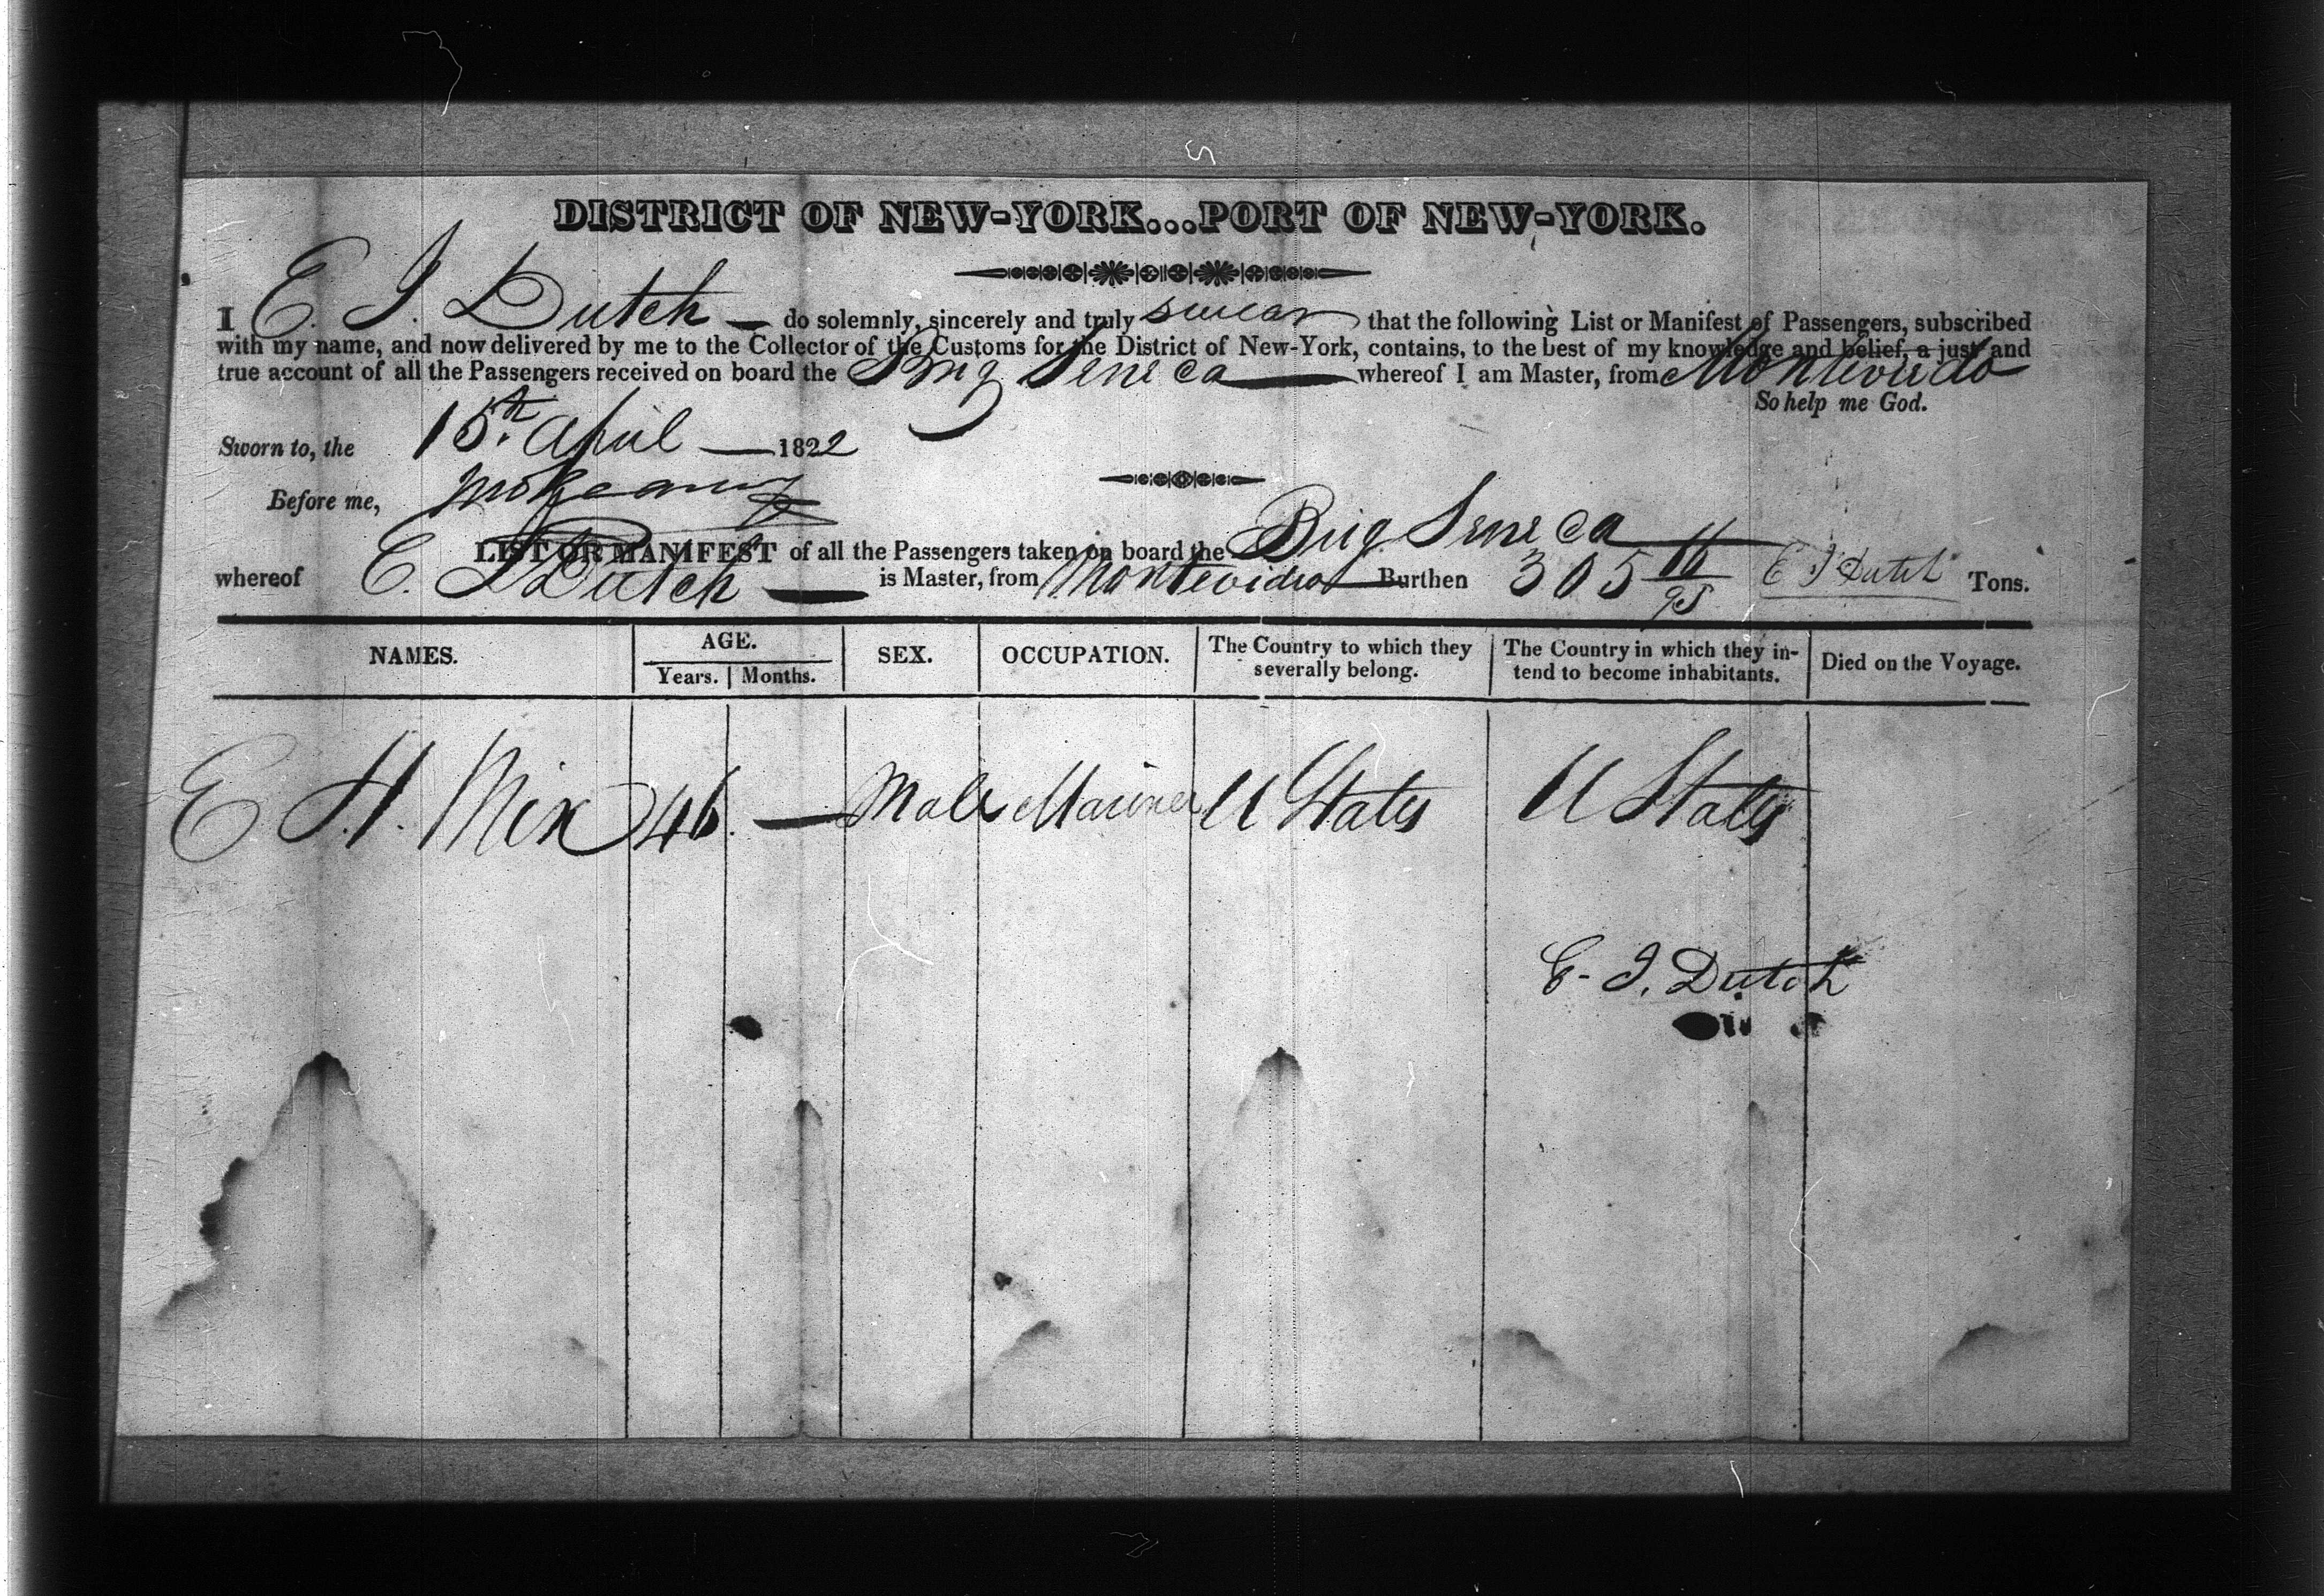 DISTRICT OF NEW-YORK...PORT OF NEW-YORK.
I E. I. Dutch — do solemnly, sincerely and truly swear that the following List or Manifest of Passengers, subscribed
with my name, and now delivered by me to the Collector of the Customs for the District of New-York, contains, to the best of my knowledge and belief, a just and
true account of all the Passengers received on board the Brig Seneca — whereof I am Master, from Montevido
So help me God.
Sworn to, the 15th April — 1822
Before me,
LIST OR MANIFEST of all the Passengers taken on board the Brig Seneca
whereof E. I Dutch — is Master, from Montevideo Burthen 305 16/95 E I Dutch Tons.
NAMES. AGE. SEX. OCCUPATION. The Country to which they severally belong. The Country in which they in-tend to become inhabitants. Died on the Voyage.
Years. Months.
E H. Mix 46. — Male Mariner U States U States
E. I. Dutch